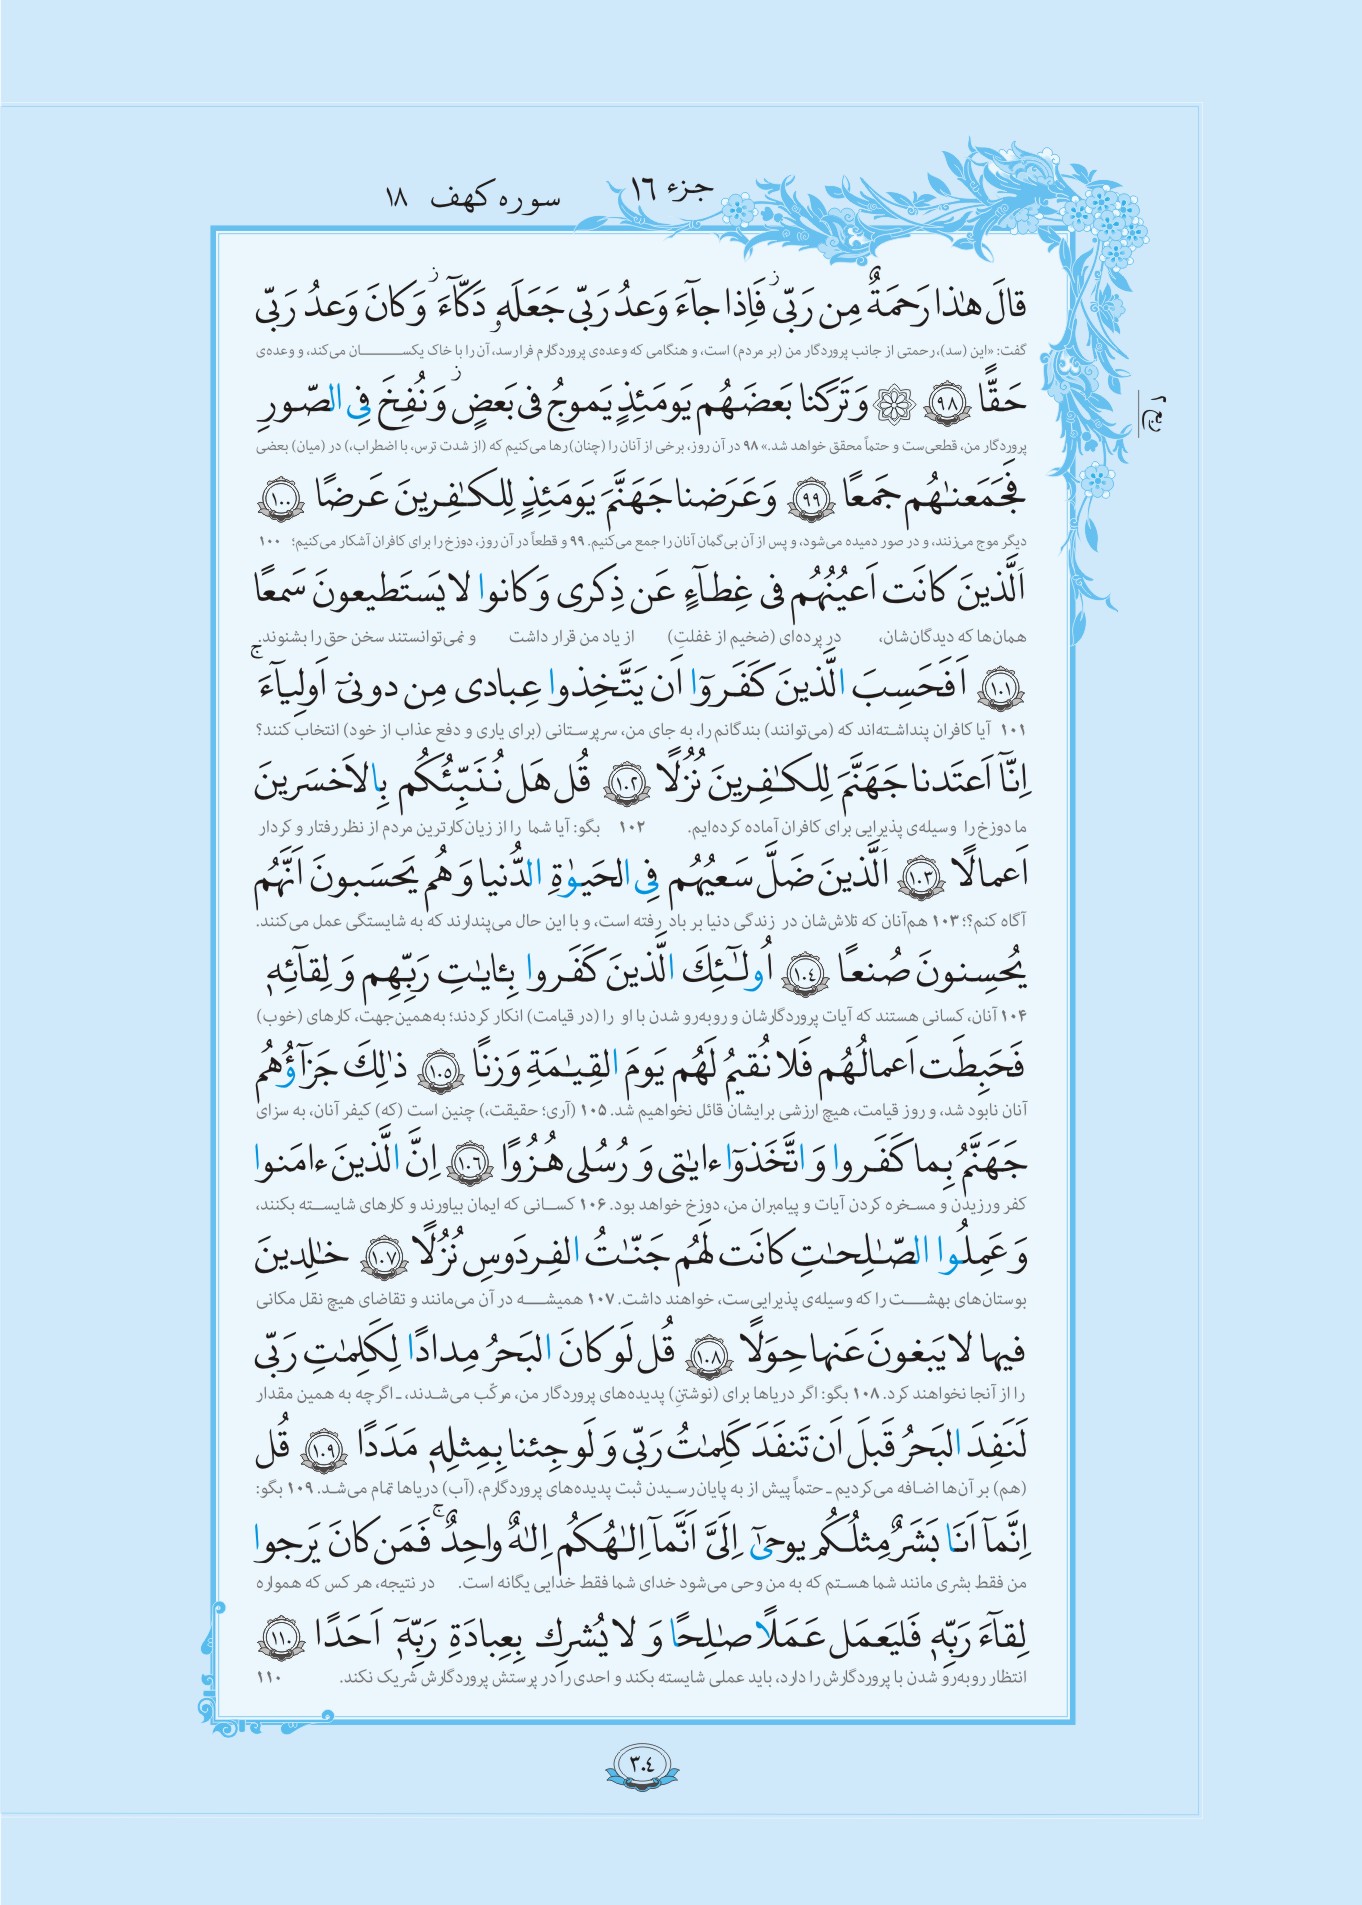 جزء ١٦
سوره کهف ١٨
ربع ٢
قالَ هٰذا رَحمَةٌ مِن رَبّی ز فَاِذا جآءَ وَعدُ رَبّی جَعَلَه و دَکّآءَ ز وَ کانَ وَعدُ رَبّی
گفت: «این (سد)، رحمتی از جانب پروردگار من (بر مردم) است، و هنگامی که وعده‌ی پروردگارم فرا رسد، آن را با خاک یکســــــان می‌کند، و وعده‌ی
حَقًّا ٩٨ وَ تَرَکنا بَعضَهُم یَومَئِذٍ یَموجُ فی بَعضٍ ز وَ نُفِخَ فِی الصّورِ
پروردگار من، قطعی‌ست و حتماً محقق خواهد شد.» ۹۸ در آن روز، برخی از آنان را (چنان) رها می‌کنیم که (از شدت ترس، با اضطراب،) در (میان) بعضی
فَجَمَعنٰهُم جَمعًا ٩٩ وَ عَرَضنا جَهَنَّمَ یَومَئِذٍ لِلکٰفِرینَ عَرضًا ١٠٠
دیگر موج می‌زنند، و در صور دمیده می‌شود، و پس از آن بی‌گمان آنان را جمع می‌کنیم. ۹۹ و قطعاً در آن روز، دوزخ را برای کافران آشکار می‌کنیم؛ ۱۰۰
اَلَّذینَ کانَت اَعیُنُهُم فی غِطآءٍ عَن ذِکری وَ کانوا لا یَستَطیعونَ سَمعًا
همان‌ها که دیدگان‌شان، در پرده‌ای (ضخیم از غفلتِ) از یاد من قرار داشت و نمی‌توانستند سخن حق را بشنوند.
١٠١ اَفَحَسِبَ الَّذینَ کَفَروٓا اَن یَتَّخِذوا عِبادی مِن دونیٓ اَولِیآءَ ج
۱۰۱ آیا کافران پنداشته‌اند که (می‌توانند) بندگانم را، به جای من، سرپرستانی (برای یاری و دفع عذاب از خود) انتخاب کنند؟
اِنّآ اَعتَدنا جَهَنَّمَ لِلکٰفِرینَ نُزُلًا ١٠٢ قُل هَل نُنَبِّئُکُم بِالاَخسَرینَ
ما دوزخ را وسیله‌ی پذیرایی برای کافران آماده کرده‌ایم. ۱۰۲ بگو: آیا شما را از زیان‌کارترین مردم از نظر رفتار و کردار
اَعمالًا ١٠٣ اَلَّذینَ ضَلَّ سَعیُهُم فِی الحَیوٰةِ الدُّنیا وَ هُم یَحسَبونَ اَنَّهُم
آگاه کنم؟؛ ۱۰۳ هم‌آنان که تلاش‌شان در زندگی دنیا بر باد رفته است، و با این حال می‌پندارند که به شایستگی عمل می‌کنند.
یُحسِنونَ صُنعًا ١٠٤ اُولٰٓئِكَ الَّذینَ کَفَروا بِـٔایٰتِ رَبِّهِم وَ لِقآئِهٖ
۱۰۴ آنان، کسانی هستند که آیات پروردگارشان و روبه‌رو شدن با او را (در قیامت) انکار کردند؛ به‌همین‌جهت، کارهای (خوب)
فَحَبِطَت اَعمالُهُم فَلا نُقیمُ لَهُم یَومَ القِیٰمَةِ وَزنًا ١٠٥ ذٰلِكَ جَزآؤُهُم
آنان نابود شد، و روز قیامت، هیچ ارزشی برایشان قائل نخواهیم شد. ۱۰۵ (آری؛ حقیقت،) چنین است (که) کیفر آنان، به سزای
جَهَنَّمُ بِما کَفَروا وَ اتَّخَذوٓا ءایٰتی وَ رُسُلی هُزُوًا ١٠٦ اِنَّ الَّذینَ ءامَنوا
کفر ورزیدن و مسخره کردن آیات و پیامبران من، دوزخ خواهد بود. ۱۰۶ کســانی که ایمان بیاورند و کارهای شایســته بکنند،
وَ عَمِلُوا الصّٰلِحٰتِ کانَت لَهُم جَنّٰتُ الفِردَوسِ نُزُلًا ١٠٧ خٰلِدینَ
بوستان‌های بهشــــت را که وسیله‌ی پذیرایی‌ست، خواهند داشت. ۱۰۷ همیشــــه در آن می‌مانند و تقاضای هیچ نقل مکانی
فیها لا یَبغونَ عَنها حِوَلًا ١٠٨ قُل لَو کانَ البَحرُ مِدادًا لِکَلِمٰتِ رَبّی
را از آنجا نخواهند کرد. ۱۰۸ بگو: اگر دریاها برای (نوشتنِ) پدیده‌های پروردگار من، مرکّب می‌شدند، ـ اگرچه به همین مقدار
لَنَفِدَ البَحرُ قَبلَ اَن تَنفَدَ کَلِمٰتُ رَبّی وَ لَو جِئنا بِمِثلِهٖ مَدَدًا ١٠٩ قُل
(هم) بر آن‌ها اضافه می‌کردیم ـ حتماً پیش از به پایان رسیدن ثبت پدیده‌های پروردگارم، (آب) دریاها تمام می‌شد. ۱۰۹ بگو:
اِنَّمآ اَنَا بَشَرٌ مِثلُکُم یوحیٰٓ اِلَیَّ اَنَّمآ اِلٰهُکُم اِلٰهٌ واحِدٌ ج فَمَن کانَ یَرجوا
من فقط بشری مانند شما هستم که به من وحی می‌شود خدای شما فقط خدایی یگانه است. در نتیجه، هر کس که همواره
لِقآءَ رَبِّهٖ فَلیَعمَل عَمَلًا صٰلِحًا وَ لا یُشرِك بِعِبادَةِ رَبِّهٖٓ اَحَدًا ١١٠
انتظار روبه‌رو شدن با پروردگارش را دارد، باید عملی شایسته بکند و احدی را در پرستش پروردگارش شریک نکند. ۱۱۰
٣٠٤